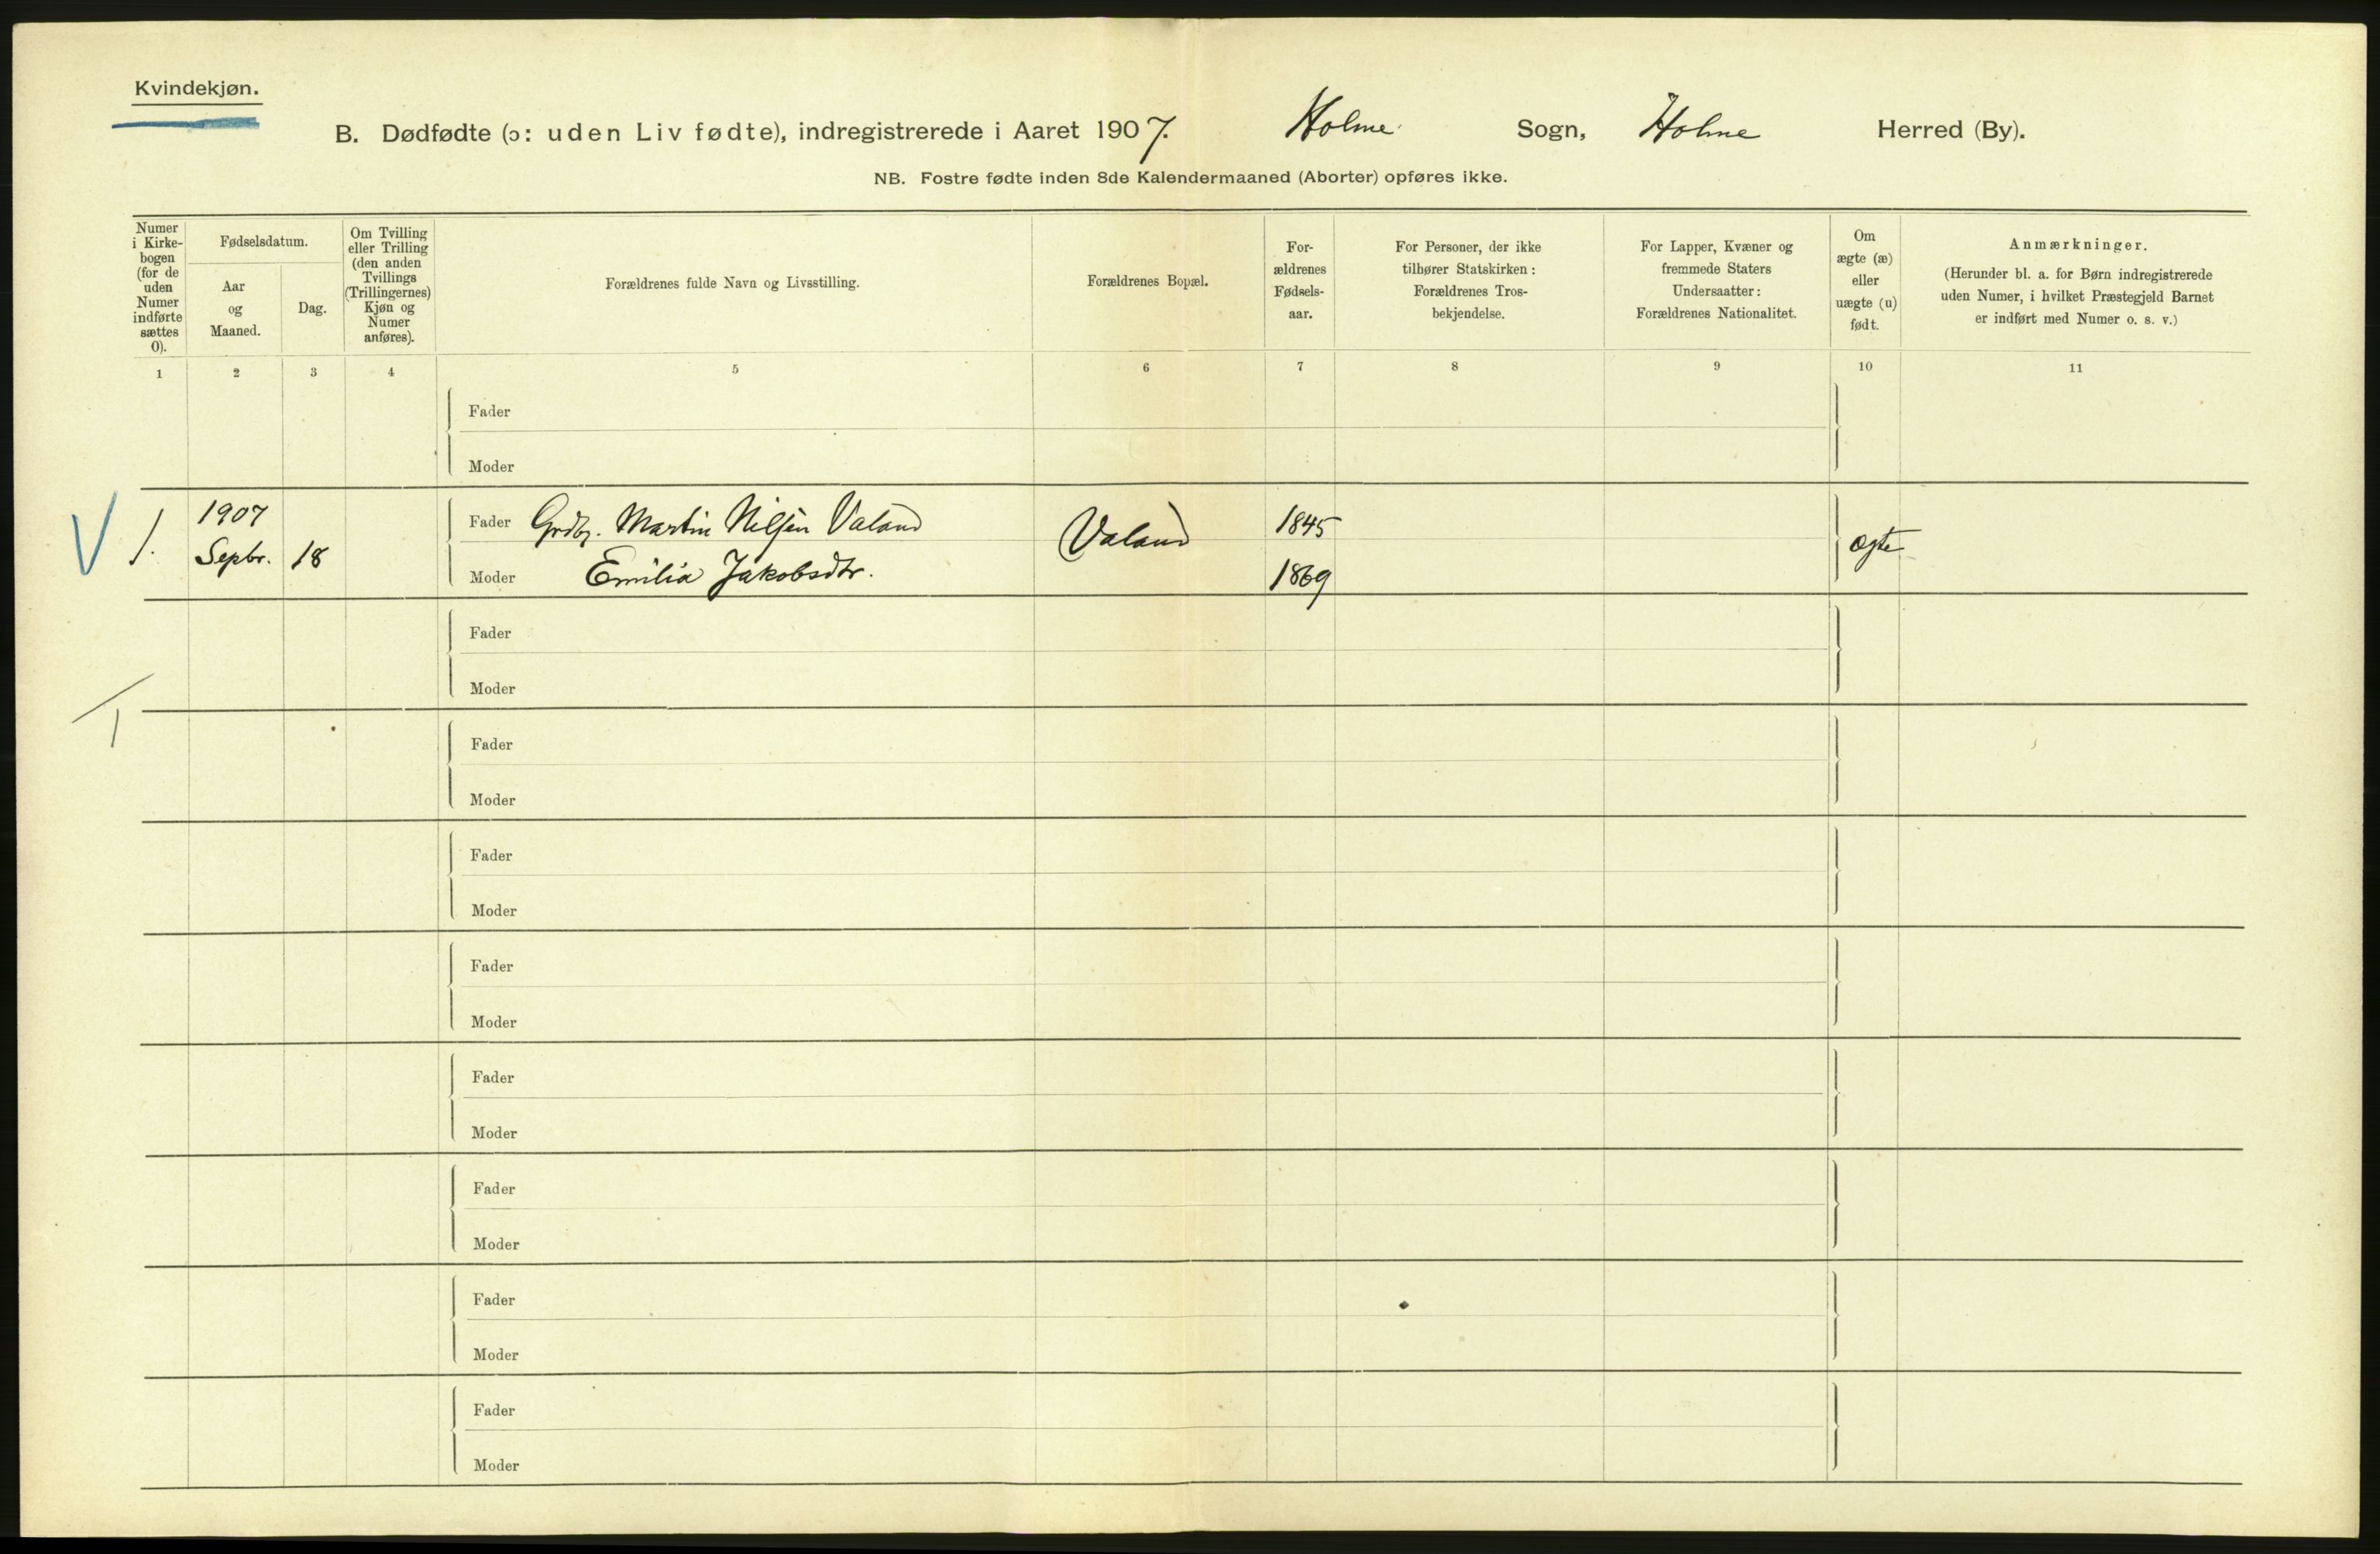 Kvindekjøn.
B. Dødfødte (ɔ: uden Liv fødte), indregistrerede i Aaret 1907. Holme Sogn, Holme Herred (By).
NB. Fostre fødte inden 8de Kalendermaaned (Aborter) opføres ikke.
Numer
i Kirke-
bogen
(for de
uden
Numer
indførte
sættes
0).
Fødselsdatum.
Aar
og
Maaned.
Dag.
Om Tvilling
eller Trilling
(den anden
Tvillings
(Trillingernes)
Kjøn og
Numer
anføres).
Forældrenes fulde Navn og Livsstilling.
Forældrenes Bopæl.
For-
ældrenes
Fødsels-
aar.
For Personer, der ikke
tilhører Statskirken:
Forældrenes Tros-
bekjendelse.
For Lapper, Kvæner og
fremmede Staters
Undersaatter:
Forældrenes Nationalitet.
Om
ægte (æ)
eller
uægte (u)
født.
Anmærkninger.
(Herunder bl. a. for Børn indregistrerede
uden Numer, i hvilket Præstegjeld Barnet
er indført med Numer o. s. v.)
1 2 3 4 5 6 7 8 9 10 11
Fader
Moder
V 1. 1907 Sepbr. 18
Fader Grdbr. Martin Nilsen Valand Valand 1845 ægte
Moder Emilia Jakobsdtr. 1869
Fader
Moder
Fader
Moder
Fader
Moder
Fader
Moder
Fader
Moder
Fader
Moder
Fader
Moder
Fader
Moder